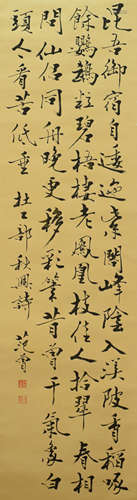 昆吾御宿自逶迤紫閣峰陰入渼陂香稻啄
餘鸚鵡粒碧梧棲老鳳凰枝佳人拾翠春相
問仙侶同舟晚更移彩筆昔曾干氣象白
頭苦低垂 杜工部秋興詩 范曾